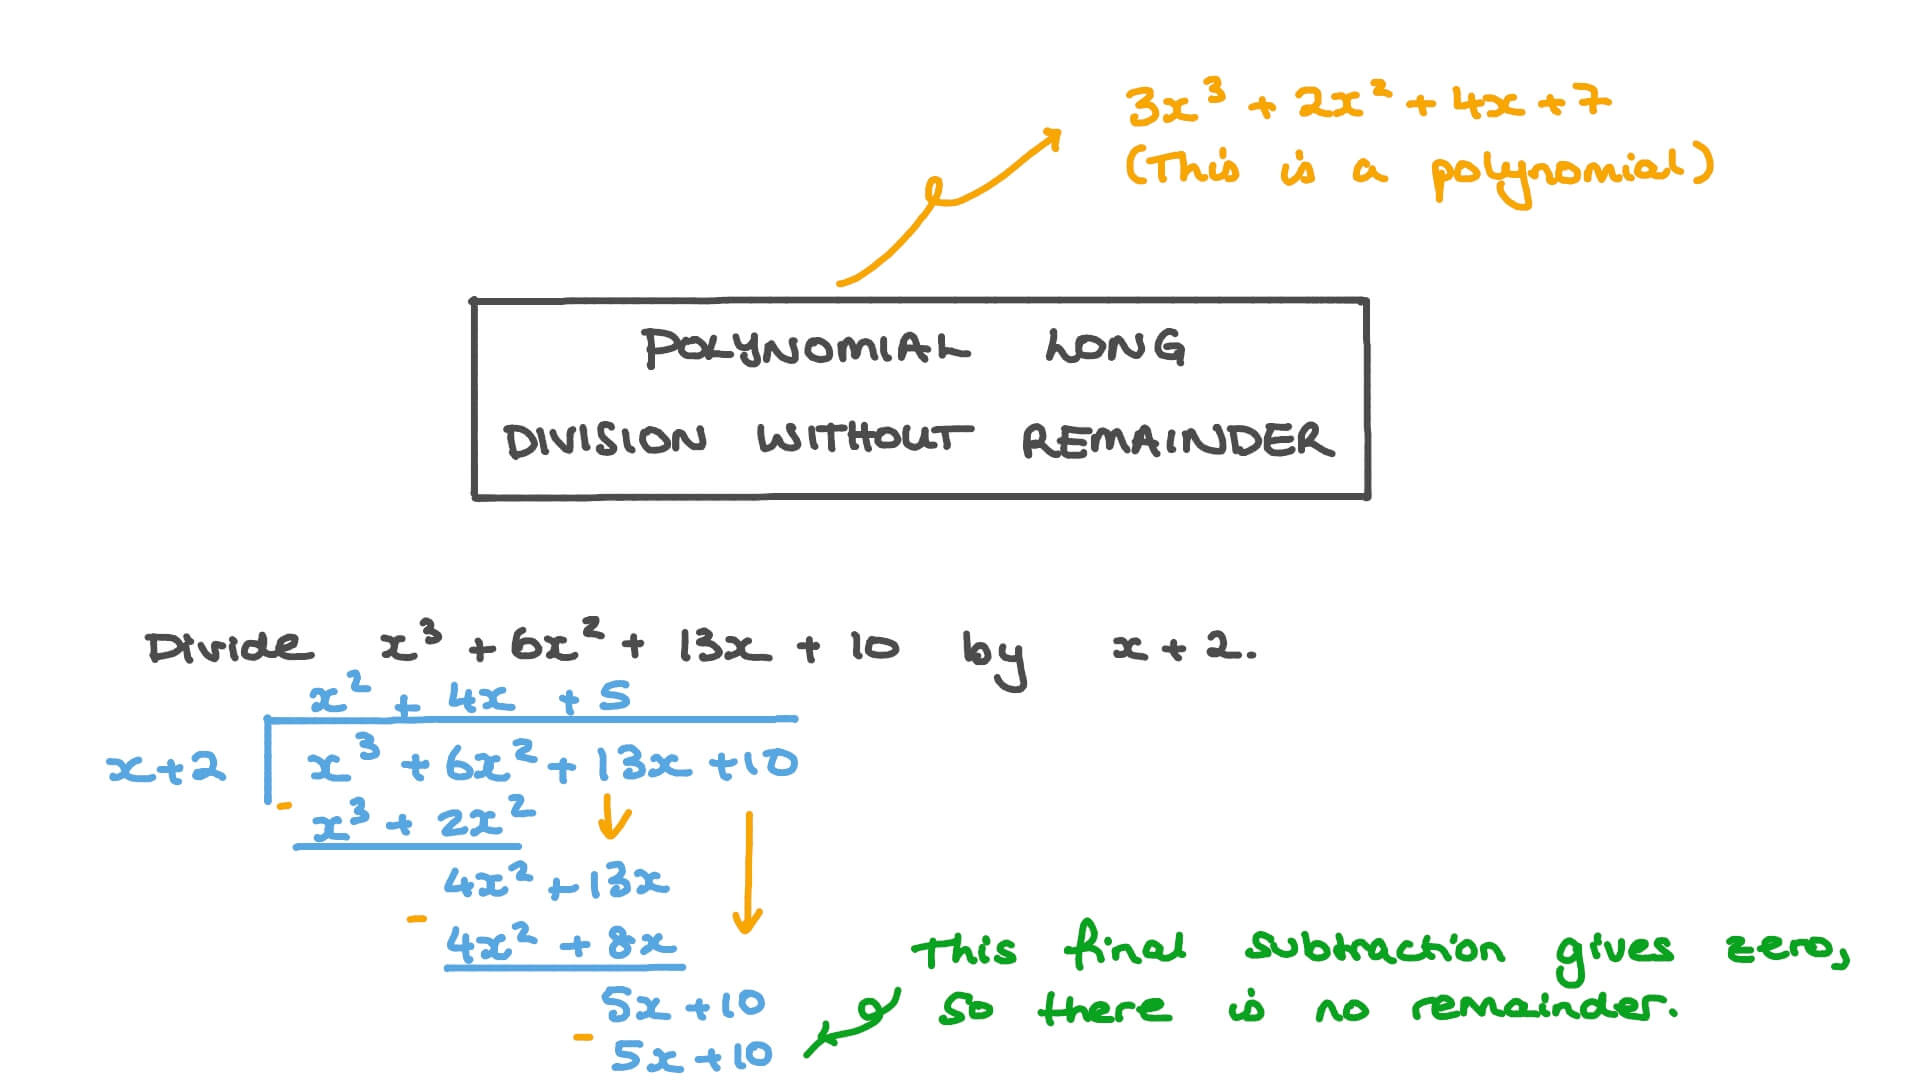 3x³ + 2x² + 4x + 7
(This is a polynomial)
POLYNOMIAL LONG
DIVISION WITHOUT REMAINDER
Divide x³ + 6x² + 13x + 10 by x + 2.
x² + 4x + 5
x+2 x³ + 6x² + 13x +10
- x³ + 2x²
4x² + 13x
- 4x² + 8x
This final subtraction gives zero,
so there is no remainder.
5x + 10
- 5x + 10